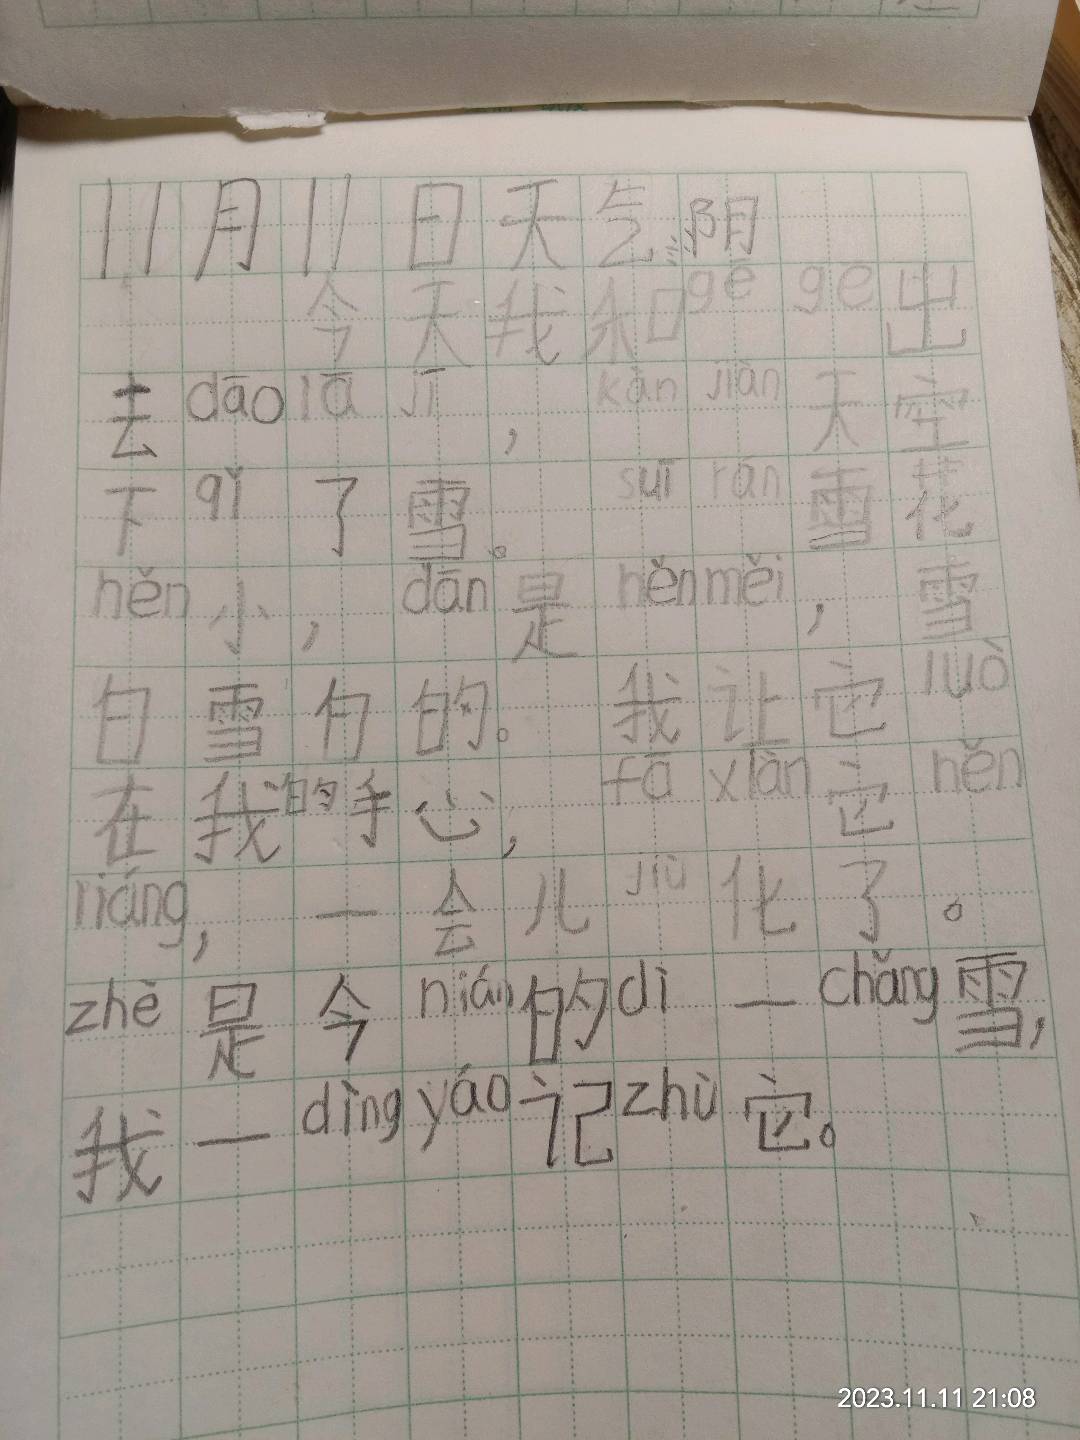 11月11日天气:阴
今天我和gē gē出
去dāo lā jī，kàn jiàn天空
下qǐ了雪。suī rán雪花
hěn小，dān是hěn měi，雪
白雪白的。我让它luò
在我的手心，fā xiàn它hěn
liáng，一会儿jiù化了。
zhè是今nián的dì一chǎng雪，
我一dìng yáo记zhù它。
2023.11.11 21:08